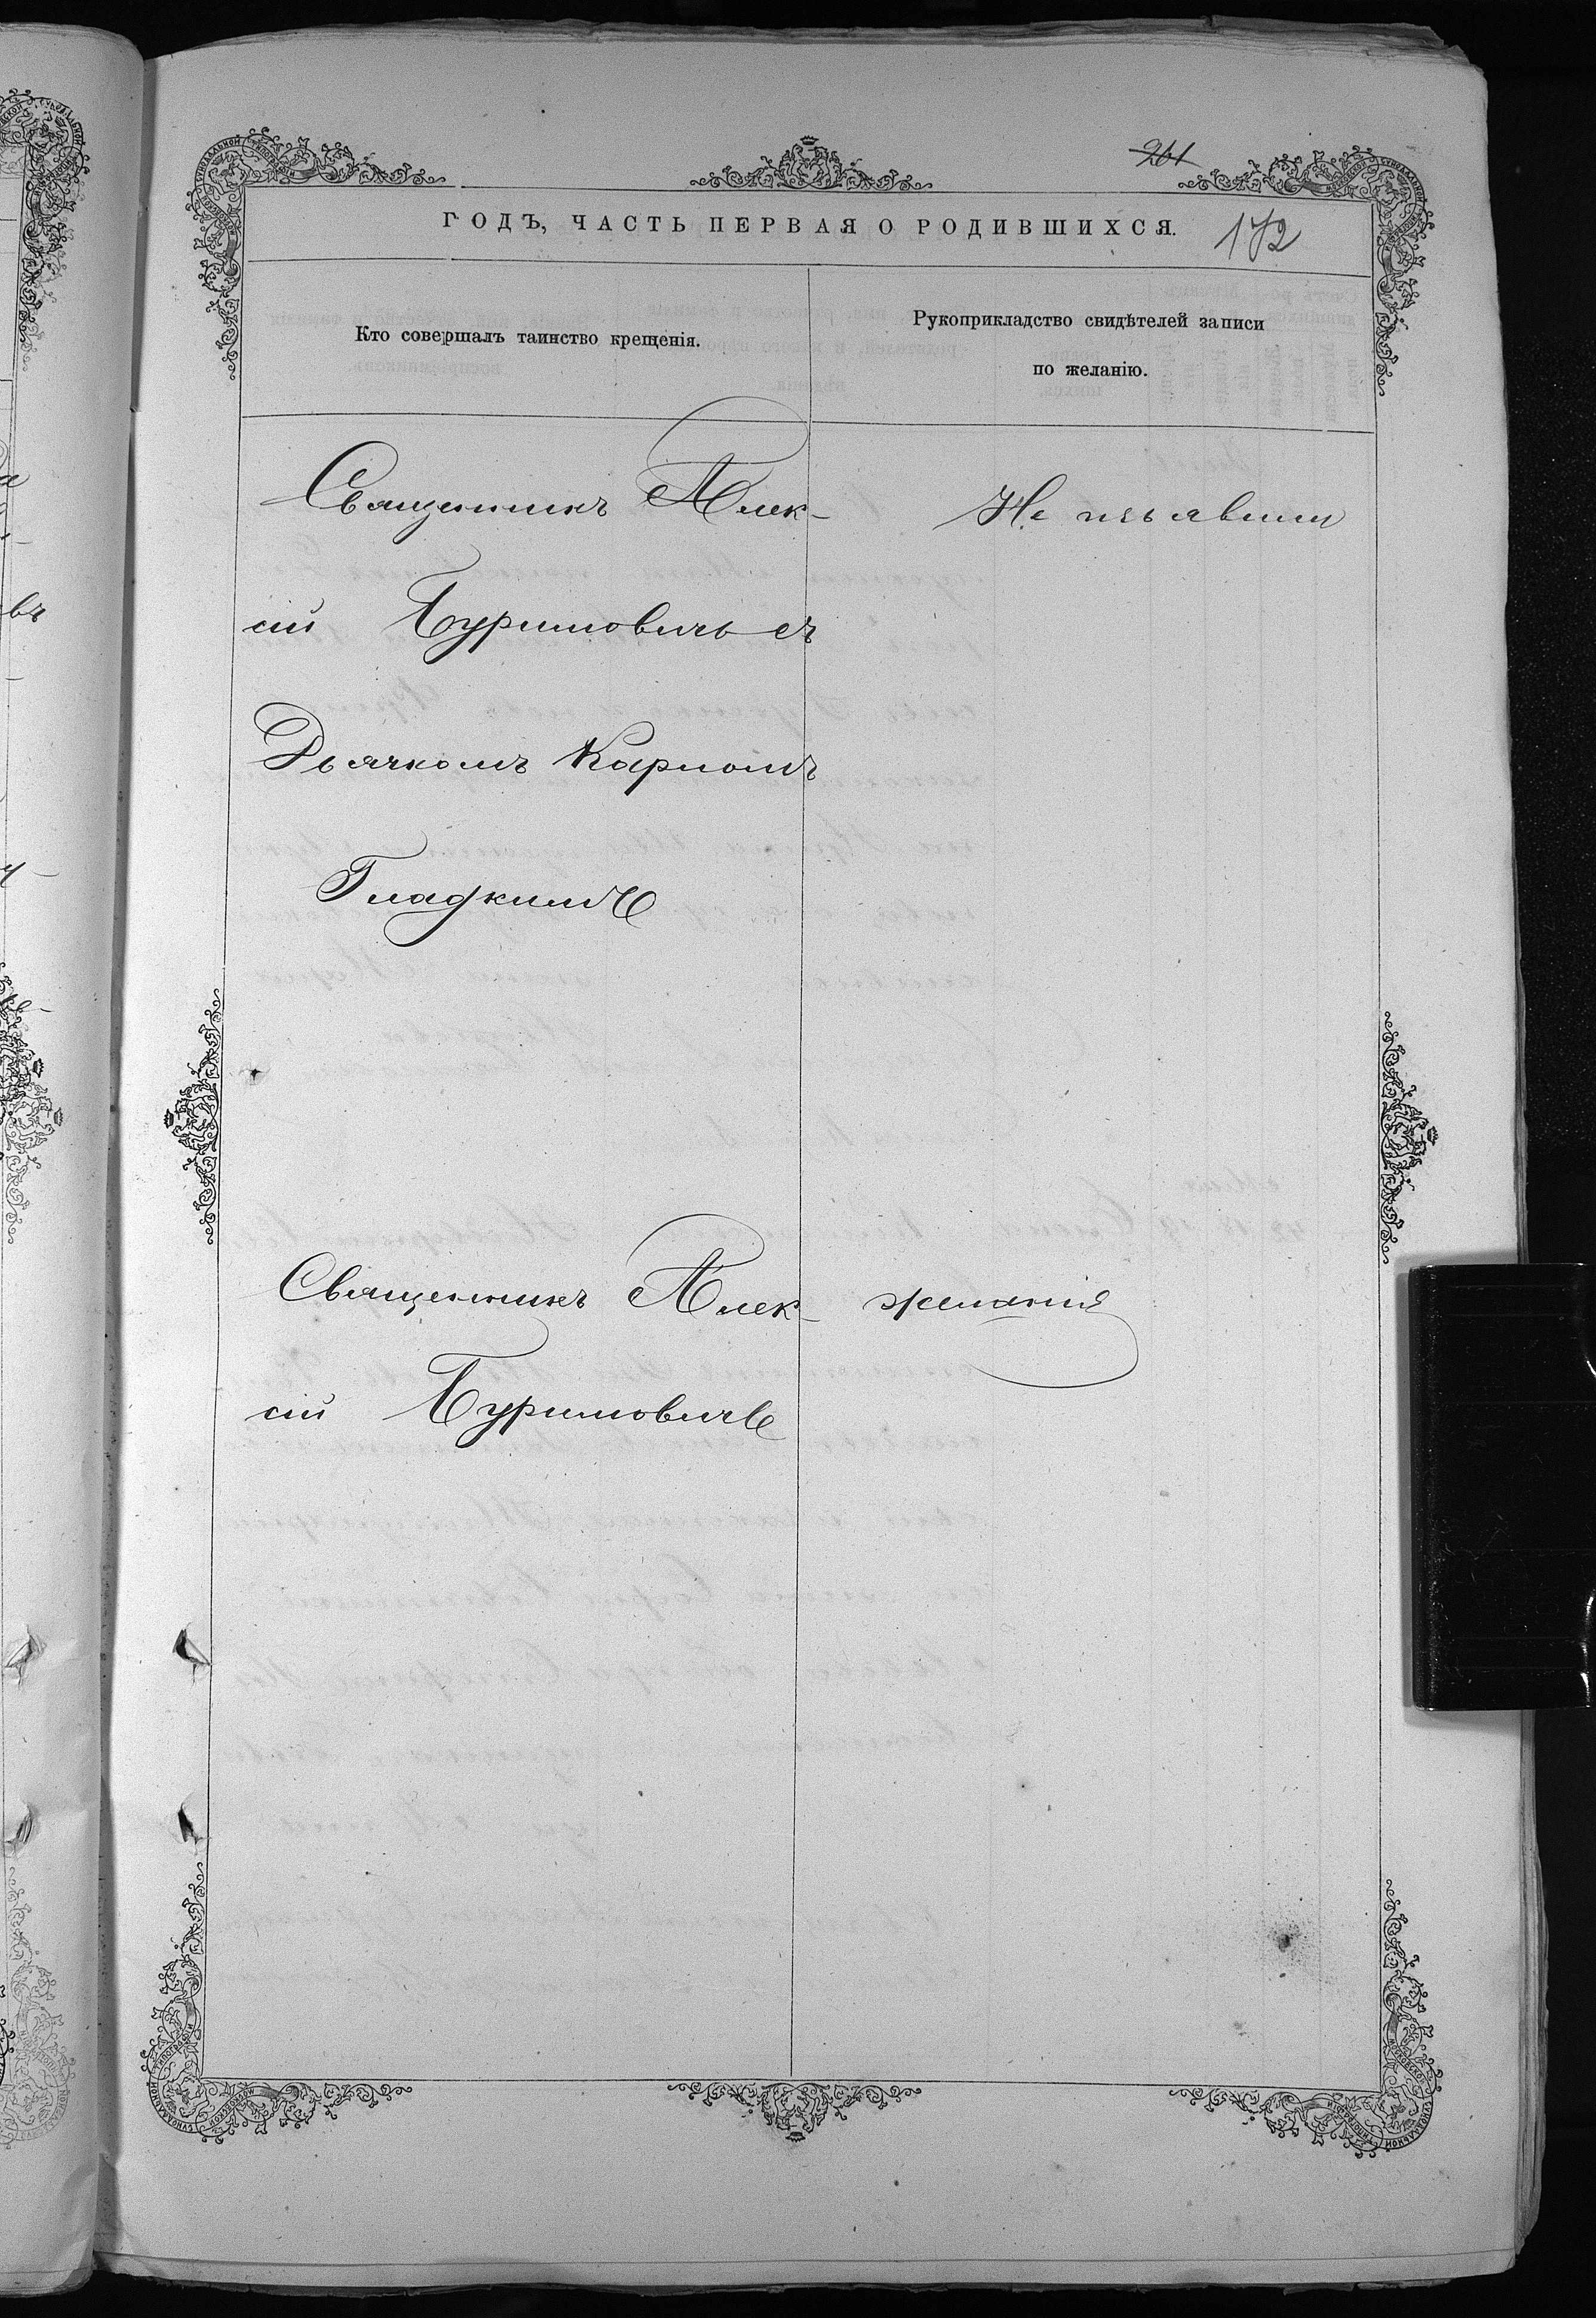 261
ГОДЪ, ЧАСТЬ ПЕРВАЯ О РОДИВШИХСЯ.
172
Кто совершалъ таинство крещенія.
Рукоприкладство свидѣтелей записи
по желанію.
Священникъ Алек-
сій Буримовичъ съ
Дьячкомъ Карпомъ
Гладкимъ
Не изъявили
Священникъ Алек-
сій Буримовичъ
желанія